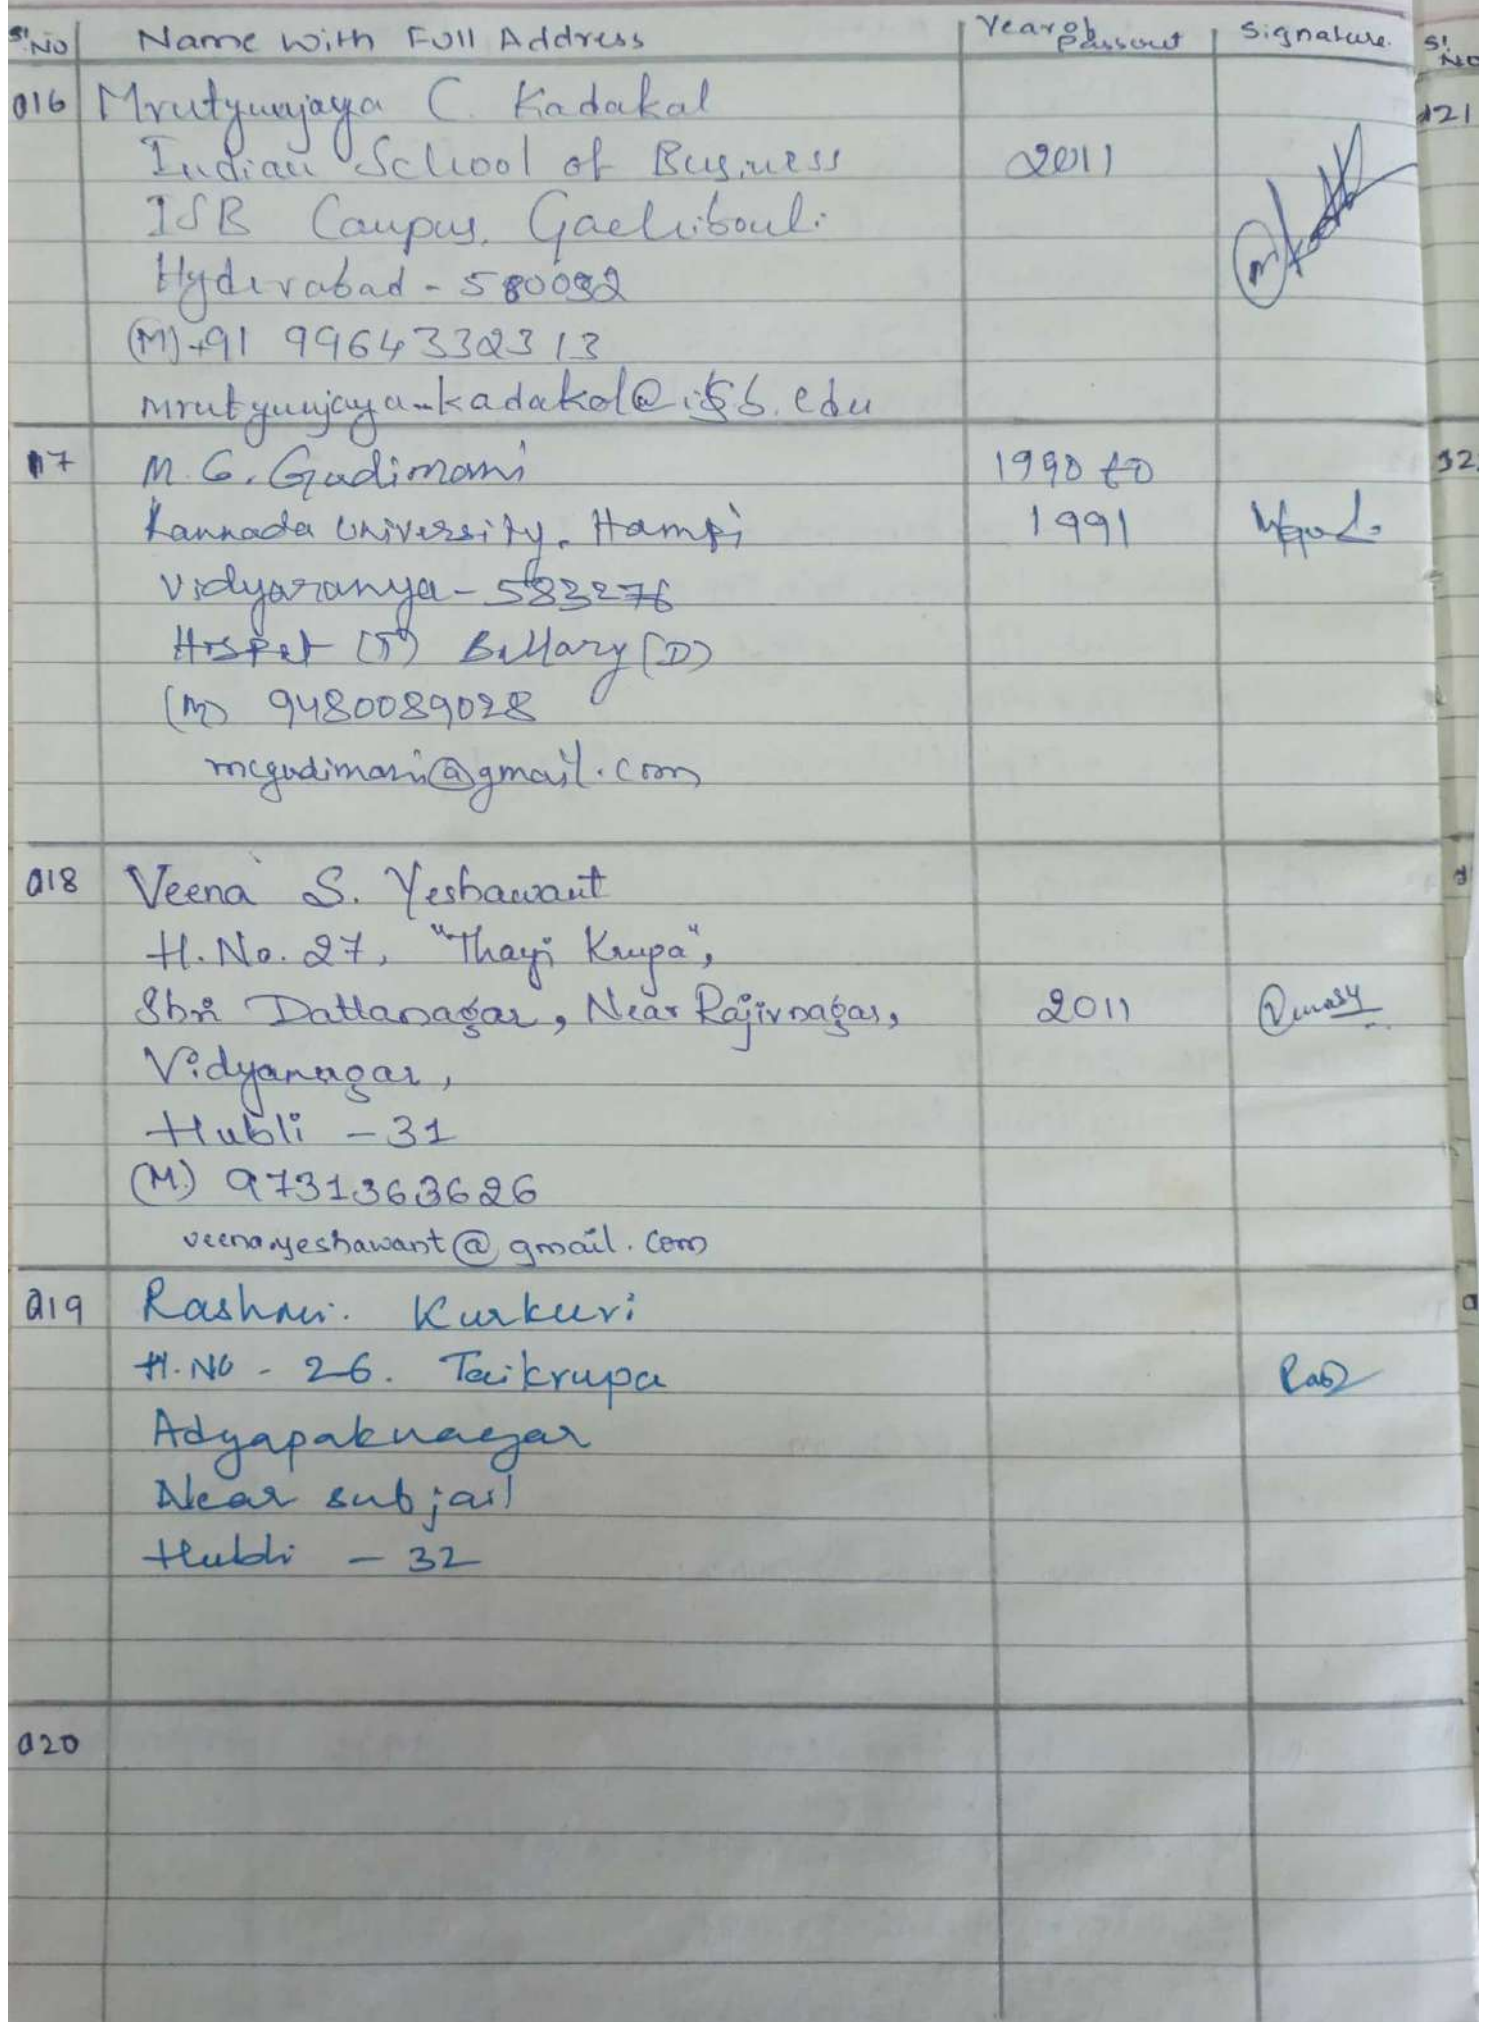 Sl. No Name with Full Address Year of Passout Signature. Sl. No
016 Mrutyunjaya C. Kadakal
Indian School of Business 2011
ISB Campus, Gachibouli.
Hyderabad -
(M) +91 9964332313
mrutyunjaya_kadakol@isb.edu
17 M. C. Gudimani 1990 to
Kannada University, Hampi 1991
Vidyaranya - 583276
Hospet (T) Bellary (D)
(M) 9480089028
mcgudimani@gmail.com
018 Veena S. Yeshawant
H. No. 27, "Thayi Krupa",
Shri Dattanagar, Near Rajivnagar, 2011
Vidyanagar,
Hubli - 31
(M.) 9731363626
veena.yeshawant@gmail.com
019 Rashmi. Kurkuri
H. NO - 26. Taikrupa
Adyapaknagar
Near subjail
Hubli - 32
020